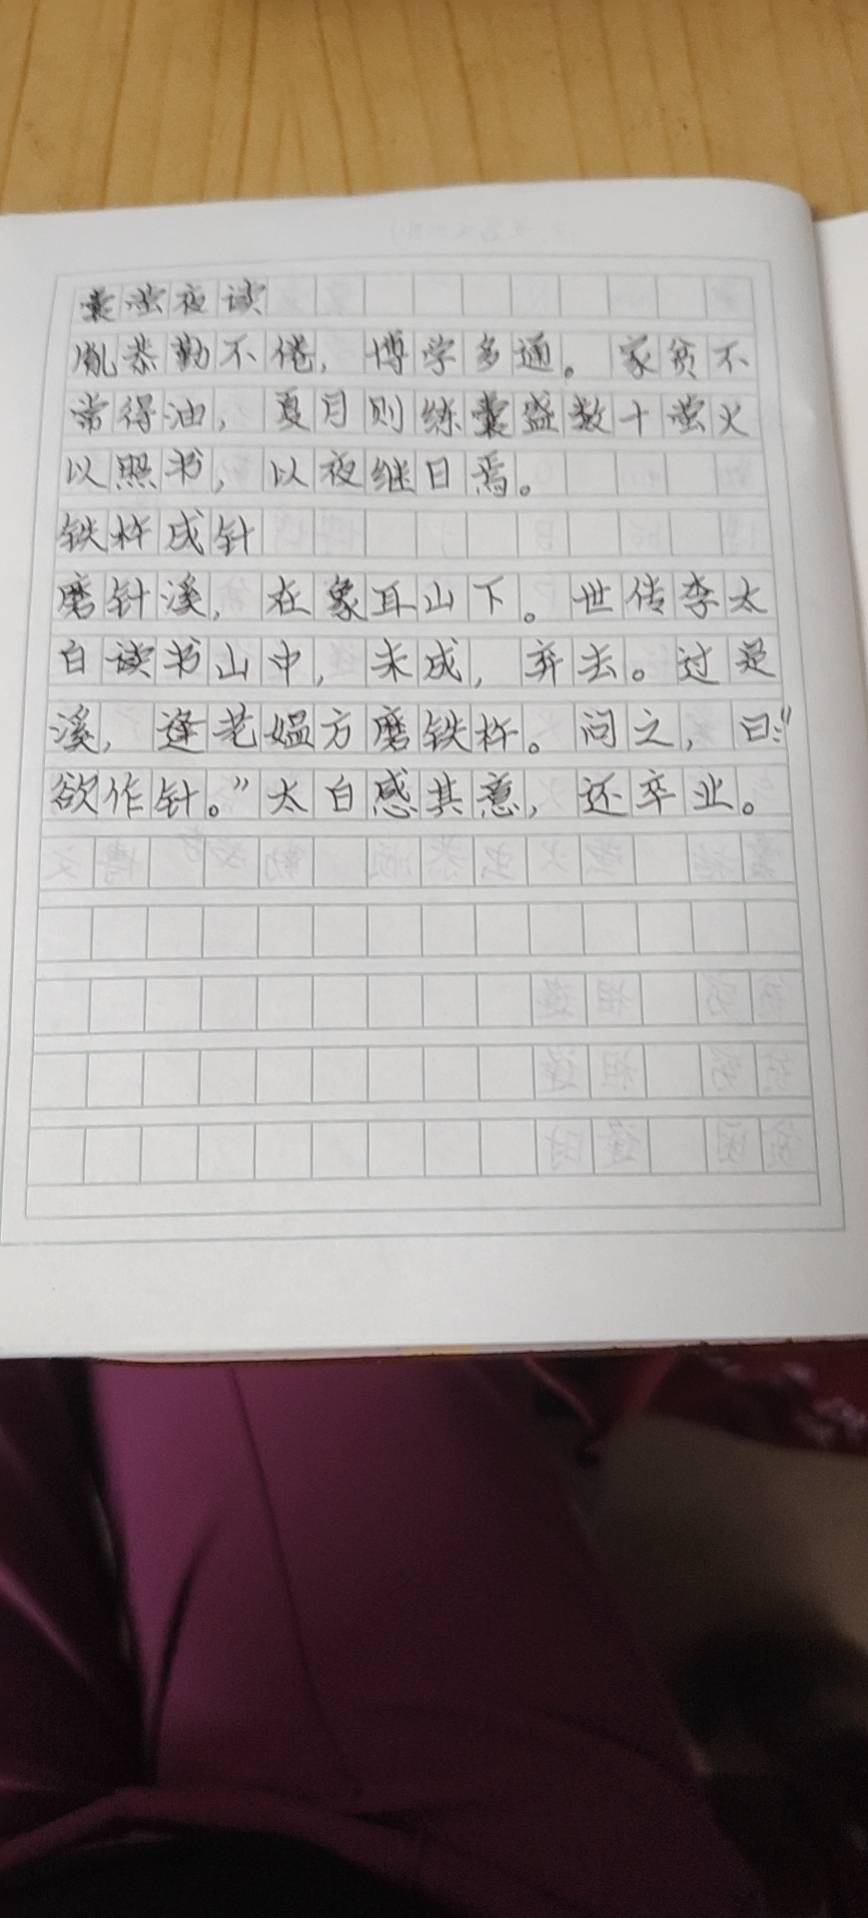 囊萤夜读
胤恭勤不倦，博学多通。家贫不
常得油，夏月则练囊盛数十萤火
以照书，以夜继日焉。
铁杵成针
磨针溪，在象耳山下。世传李太
白读书山中，未成，弃去。过是
溪，逢老媪方磨铁杵。问之，曰：“
欲作针。”太白感其意，还卒业。